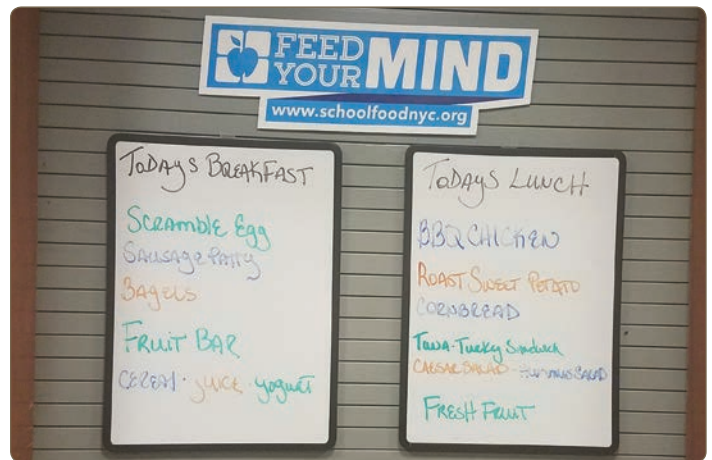 FEED
YOUR MIND
www.schoolfoodnyc.org
TODAYS BREAKFAST
SCRAMBLE EGG
SAUSAGE PATTY
BAGELS
FRUIT BAR
CEREAL · JUICE · yogurt
TODAYS LUNCH
BBQ CHICKEN
ROAST SWEET POTATO
CORNBREAD
TUNA-TURKY SANDWICH
CAESAR SALAD - HUMMUS SALAD
FRESH FRUIT